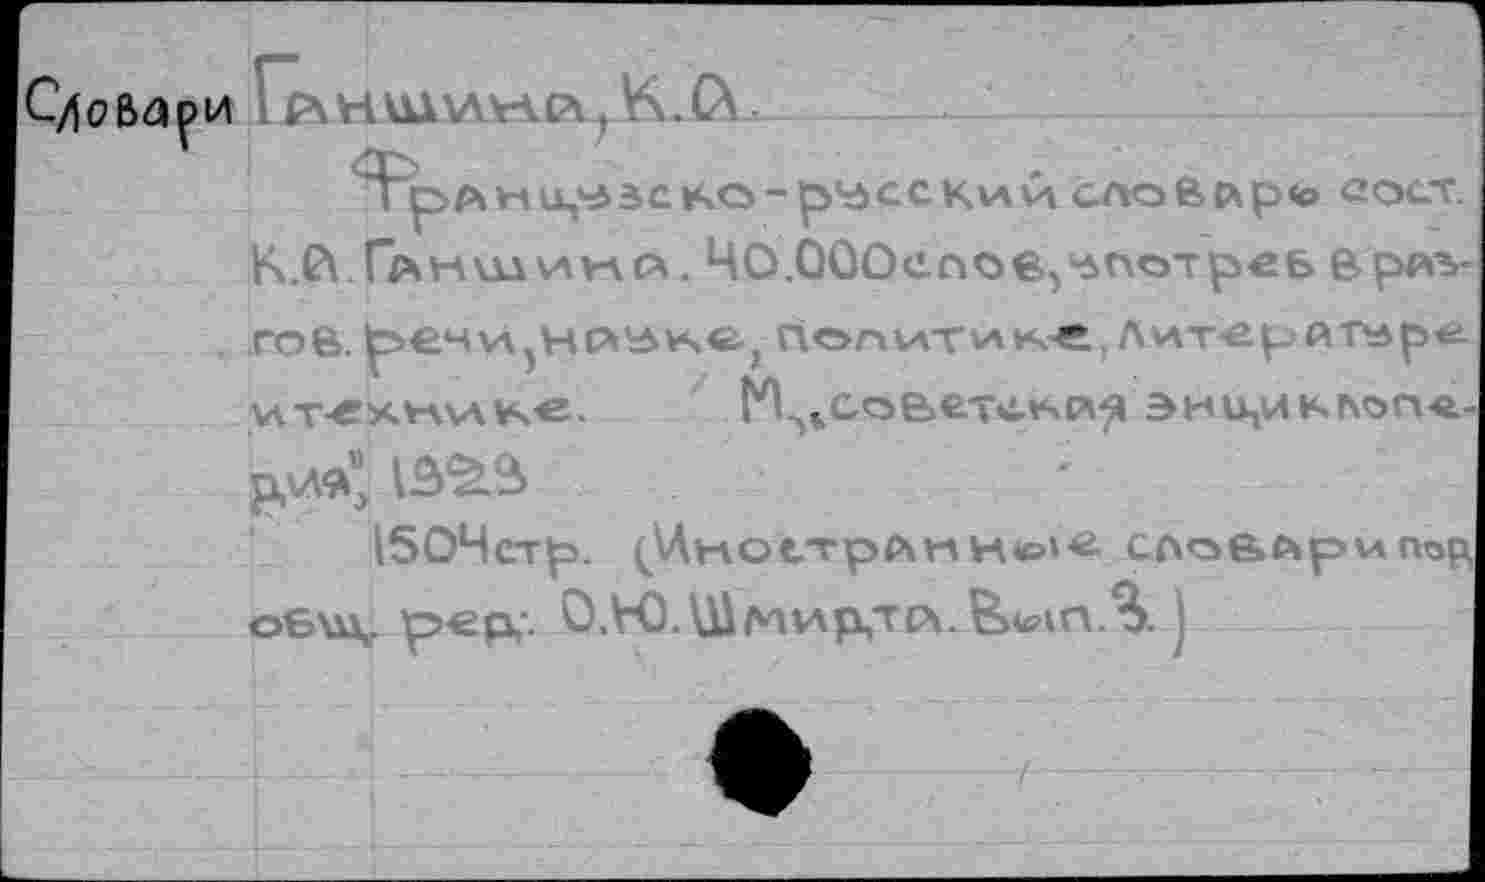 Словари Ганшина, К.А.
Французско-русский словарь сост.
К.А. Ганшина. 40.000 слов, употреб в раз-
гов. речи, науке, политике, литературе
и технике. М., „Советская энциклопе-
дия",
1504 стр. (Иностранные словари под
общ. ред. О.Ю. Шмидта. Вып. 3.)